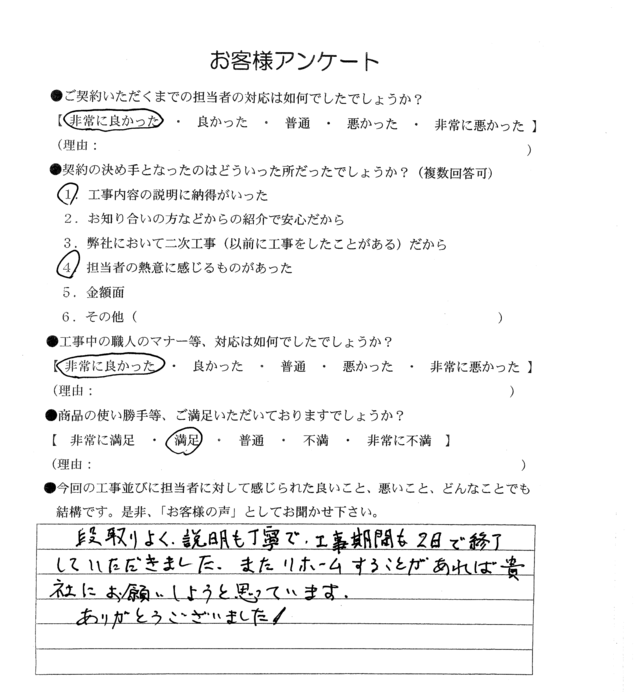 お客様アンケート
●ご契約いただくまでの担当者の対応は如何でしたでしょうか？
【 非常に良かった ・ 良かった ・ 普通 ・ 悪かった ・ 非常に悪かった 】
（理由： ）
●契約の決め手となったのはどういった所だったでしょうか？（複数回答可）
1．工事内容の説明に納得がいった
2．お知り合いの方などからの紹介で安心だから
3．弊社において二次工事（以前に工事をしたことがある）だから
4．担当者の熱意に感じるものがあった
5．金額面
6．その他（ ）
●工事中の職人のマナー等、対応は如何でしたでしょうか？
【 非常に良かった ・ 良かった ・ 普通 ・ 悪かった ・ 非常に悪かった 】
（理由： ）
●商品の使い勝手等、ご満足いただいておりますでしょうか？
【 非常に満足 ・ 満足 ・ 普通 ・ 不満 ・ 非常に不満 】
（理由： ）
●今回の工事並びに担当者に対して感じられた良いこと、悪いこと、どんなことでも
結構です。是非、「お客様の声」としてお聞かせ下さい。
段取りよく、説明も丁寧で、工事期間も2日で終了
していただきました。またリホームすることがあれば貴
社にお願いしようと思っています。
ありがとうございました！